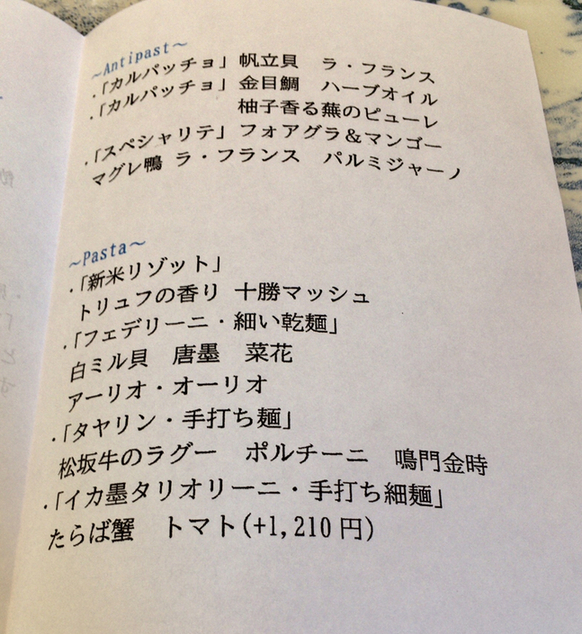 ～Antipast～
・「カルパッチョ」帆立貝　ラ・フランス
・「カルパッチョ」金目鯛　ハーブオイル
柚子香る蕪のピューレ
・「スペシャリテ」フォアグラ＆マンゴー
マグレ鴨 ラ・フランス　パルミジャーノ
～Pasta～
・「新米リゾット」
トリュフの香り 十勝マッシュ
・「フェデリーニ・細い乾麺」
白ミル貝　唐墨　菜花
アーリオ・オーリオ
・「タヤリン・手打ち麺」
松坂牛のラグー　ポルチーニ　鳴門金時
・「イカ墨タリオリーニ・手打ち細麺」
たらば蟹　トマト(+1,210円)